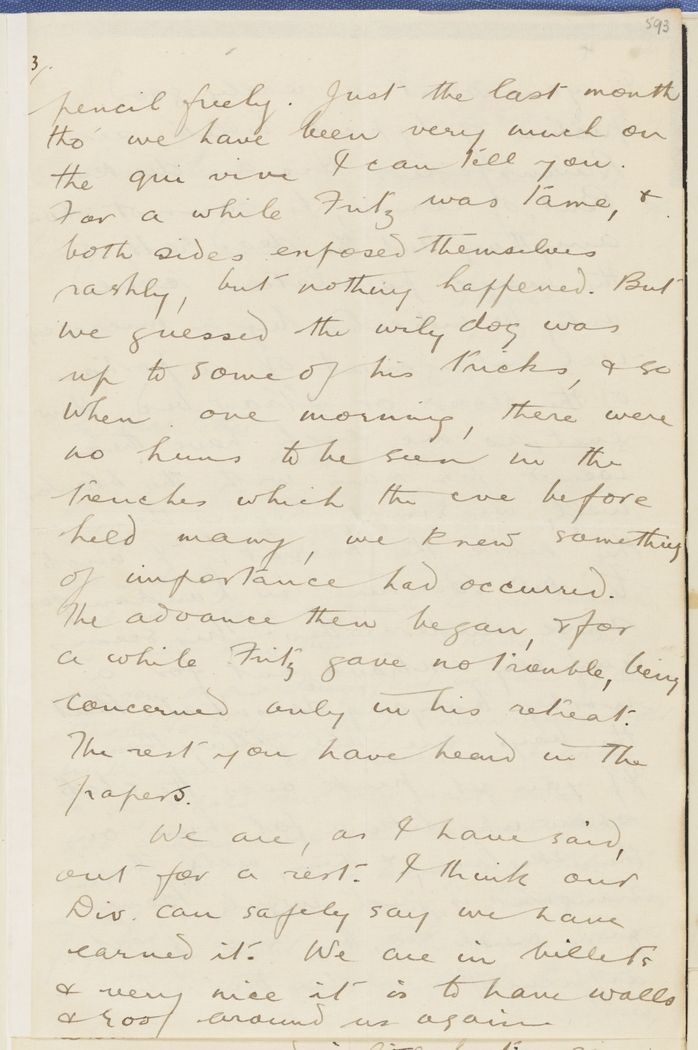 593
3/.
pencil freely. Just the last month
tho' we have been very much on
the qui vive I can tell you.
For a while Fritz was tame, &
both sides exposed themselves
rashly, but nothing happened. But
we guessed the wily dog was
up to some of his tricks, & so
when one morning, there were
no huns to be seen in the
trenches which the eve before
held many, we knew something
of importance had occurred.
The advance then began, & for
a while Fritz gave no trouble, being
concerned only in his retreat.
The rest you have heard in the
papers.
We are, as I have said,
out for a rest. I think our
Div. can safely say we have
earned it. We are in billets
& very nice it is to have walls
& roof around us again